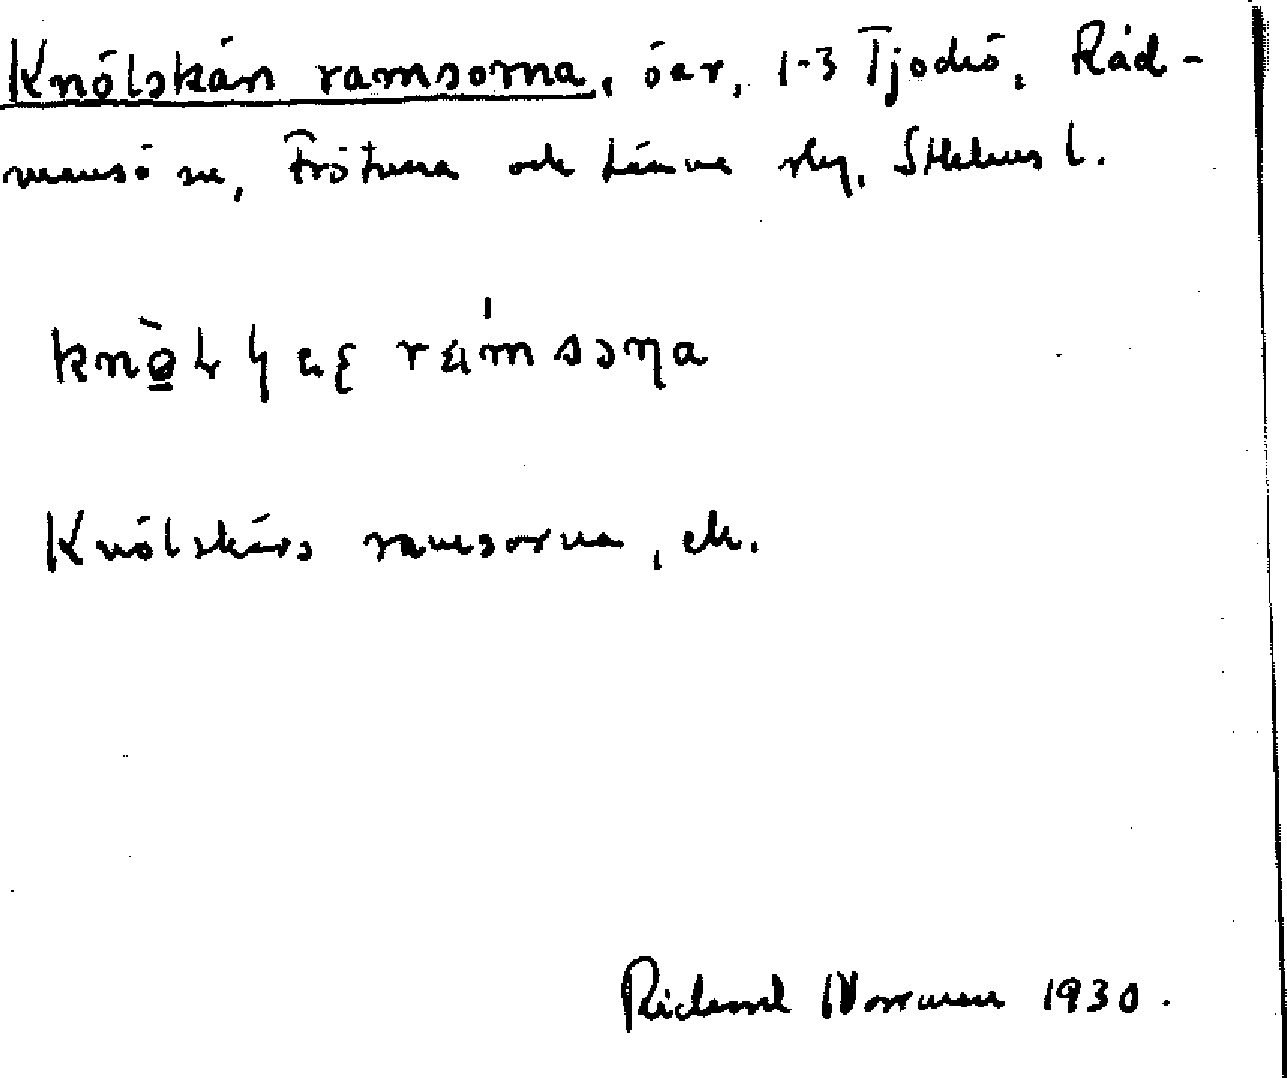 Knölskärs ramsorna, öar, 1-3 Tjockö, Råd-
mansö sn, Frötuna och Länna sky, Sthlms l.
Knölskärs ramsorna, ek.
Rickard Norrman 1930.